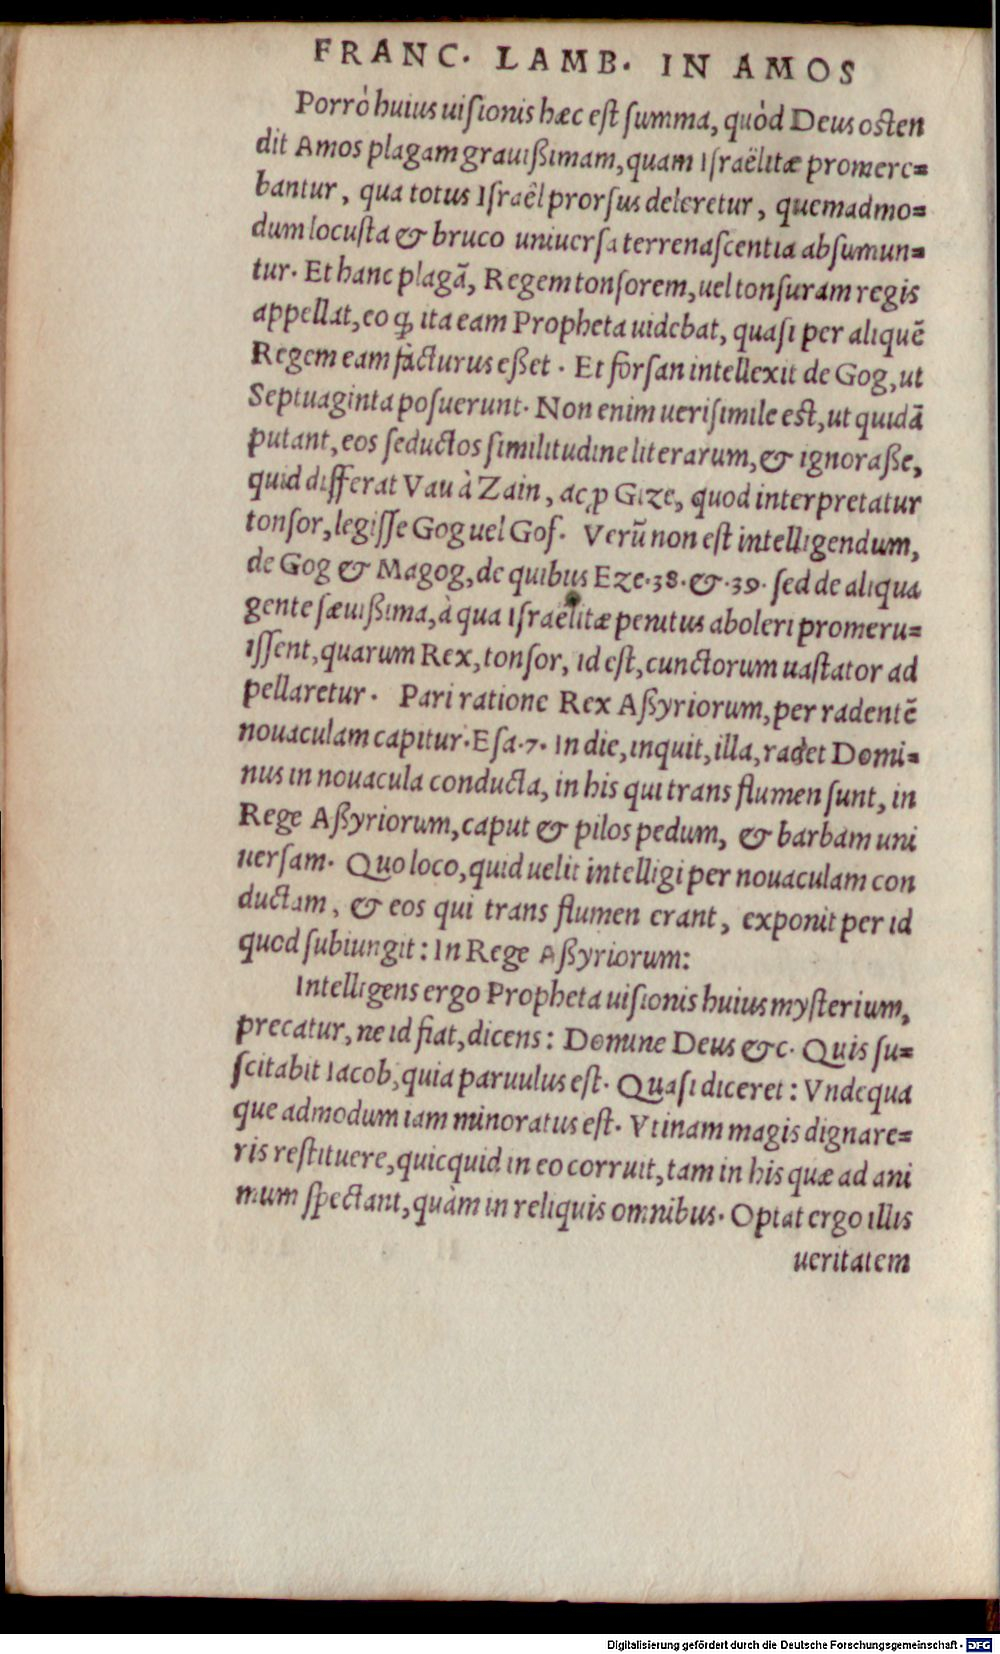 FRANC. LAMB. IN AMOS
Porrò huius uiſionis hæc eſt ſumma, quòd Deus oſten
dit Amos plagam grauißimam, quam Iſraëlitæ promere=
bantur, qua totus Iſraêl prorſus deleretur, quemadmo=
dum locuſta & bruco uniuerſa terrenaſcentia abſumun=
tur. Et hanc plagã, Regem tonſorem, uel tonſuram regis
appellat, eo ꝙ ita eam Propheta uidebat, quaſi per aliquẽ
Regem eam facturus eßet. Et forſan intellexit de Gog, ut
Septuaginta poſuerunt. Non enim ueriſimile eſt, ut quidã
putant, eos ſeductos ſimilitudine literarum, & ignoraße,
quid differat Vau à Zain, ac ꝓ Gize, quod interpretatur
tonſor, legiſſe Gog uel Gof. Verũ non eſt intelligendum,
de Gog & Magog, de quibus Eze. 38. &. 39. ſed de aliqua
gente ſæuißima, à qua Iſraëlitæ penitus aboleri promeru=
iſſent, quarum Rex, tonſor, id eſt, cunctorum uaſtator ad
pellaretur. Pari ratione Rex Aßyriorum, per radentẽ
nouaculam capitur. Eſa. 7. In die, inquit, illa, radet Domi=
nus in nouacula conducta, in his qui trans flumen ſunt, in
Rege Aßyriorum, caput & pilos pedum, & barbam uni
uerſam. Quo loco, quid uelit intelligi per nouaculam con
ductam, & eos qui trans flumen erant, exponit per id
quod ſubiungit: In Rege Aßyriorum:
Intelligens ergo Propheta uiſionis huius myſterium,
precatur, ne id fiat, dicens: Domine Deus &c. Quis ſu=
ſcitabit Iacob, quia paruulus eſt. Quaſi diceret: Vndequa
que admodum iam minoratus eſt. Vtinam magis dignare=
ris reſtituere, quicquid in eo corruit, tam in his quæ ad ani
mum ſpectant, quàm in reliquis omnibus. Optat ergo illis
ueritatem
Digitalisierung gefördert durch die Deutsche Forschungsgemeinschaft - DFG